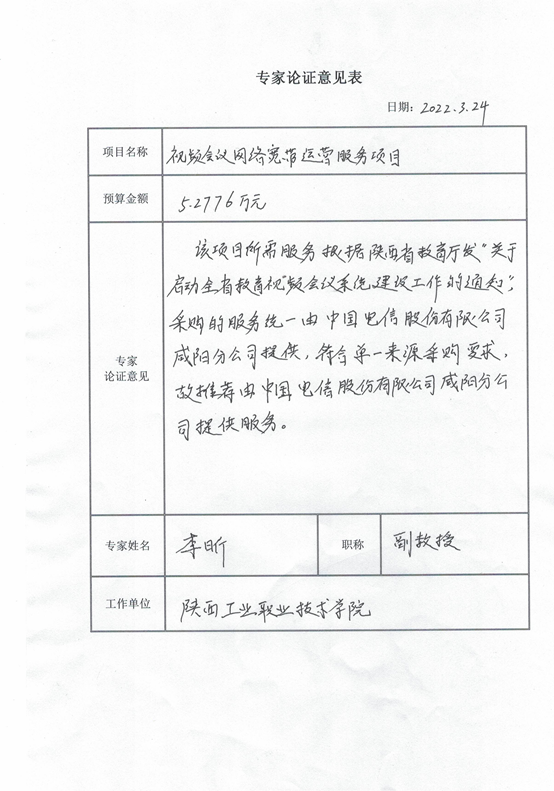 专家论证意见表
日期: 2022.3.24
项目名称 视频会议网络宽带运营服务项目
预算金额 5.2776万元
该项目所需服务根据陕西省教育厅发“关于
启动全省教育视频会议系统建设工作的通知”,
采购的服务统一由中国电信股份有限公司
咸阳分公司提供,符合单一来源采购要求,
专家
论证意见
故推荐由中国电信股份有限公司咸阳分公
司提供服务。
专家姓名 李昕 职称 副教授
工作单位 陕西工业职业技术学院